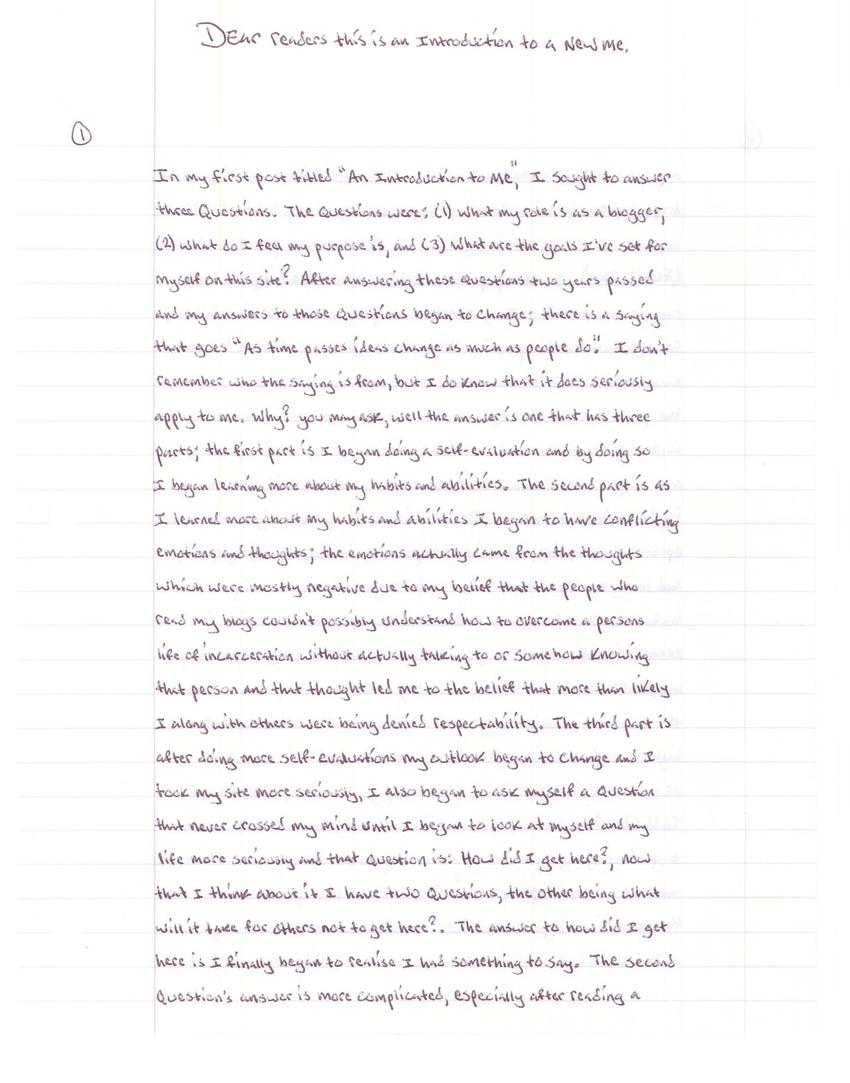 Dear readers this is an Introduction to a New me.
1
In my first post titled "An Introduction to Me", I sought to answer
three Questions. The Questions were: (1) what my role is as a blogger,
(2) what do I feel my purpose is, and (3) what are the goals I've set for
myself on this site? After answering these Questions two years passed
and my answers to those Questions began to change; there is a saying
that goes "As time passes ideas change as much as people do." I don't
remember who the saying is from, but I do know that it does seriously
apply to me. Why? you may ask, well the answer is one that has three
parts; the first part is I began doing a self-evaluation and by doing so
I began learning more about my habits and abilities. The second part is as
I learned more about my habits and abilities I began to have conflicting
emotions and thoughts; the emotions actually came from the thoughts
which were mostly negative due to my belief that the people who
read my blogs couldn't possibly understand how to overcome a persons
life of incarceration without actually talking to or somehow knowing
that person and that thought led me to the belief that more than likely
I along with others were being denied respectability. The third part is
after doing more self-evaluations my outlook began to change and I
took my site more seriously, I also began to ask myself a Question
that never crossed my mind until I began to look at myself and my
life more seriously and that Question is: How did I get here?, now
that I think about it I have two Questions, the other being what
will it take for others not to get here?. The answer to how did I get
here is I finally began to realise I had something to say. The second
Question's answer is more complicated, especially after reading a